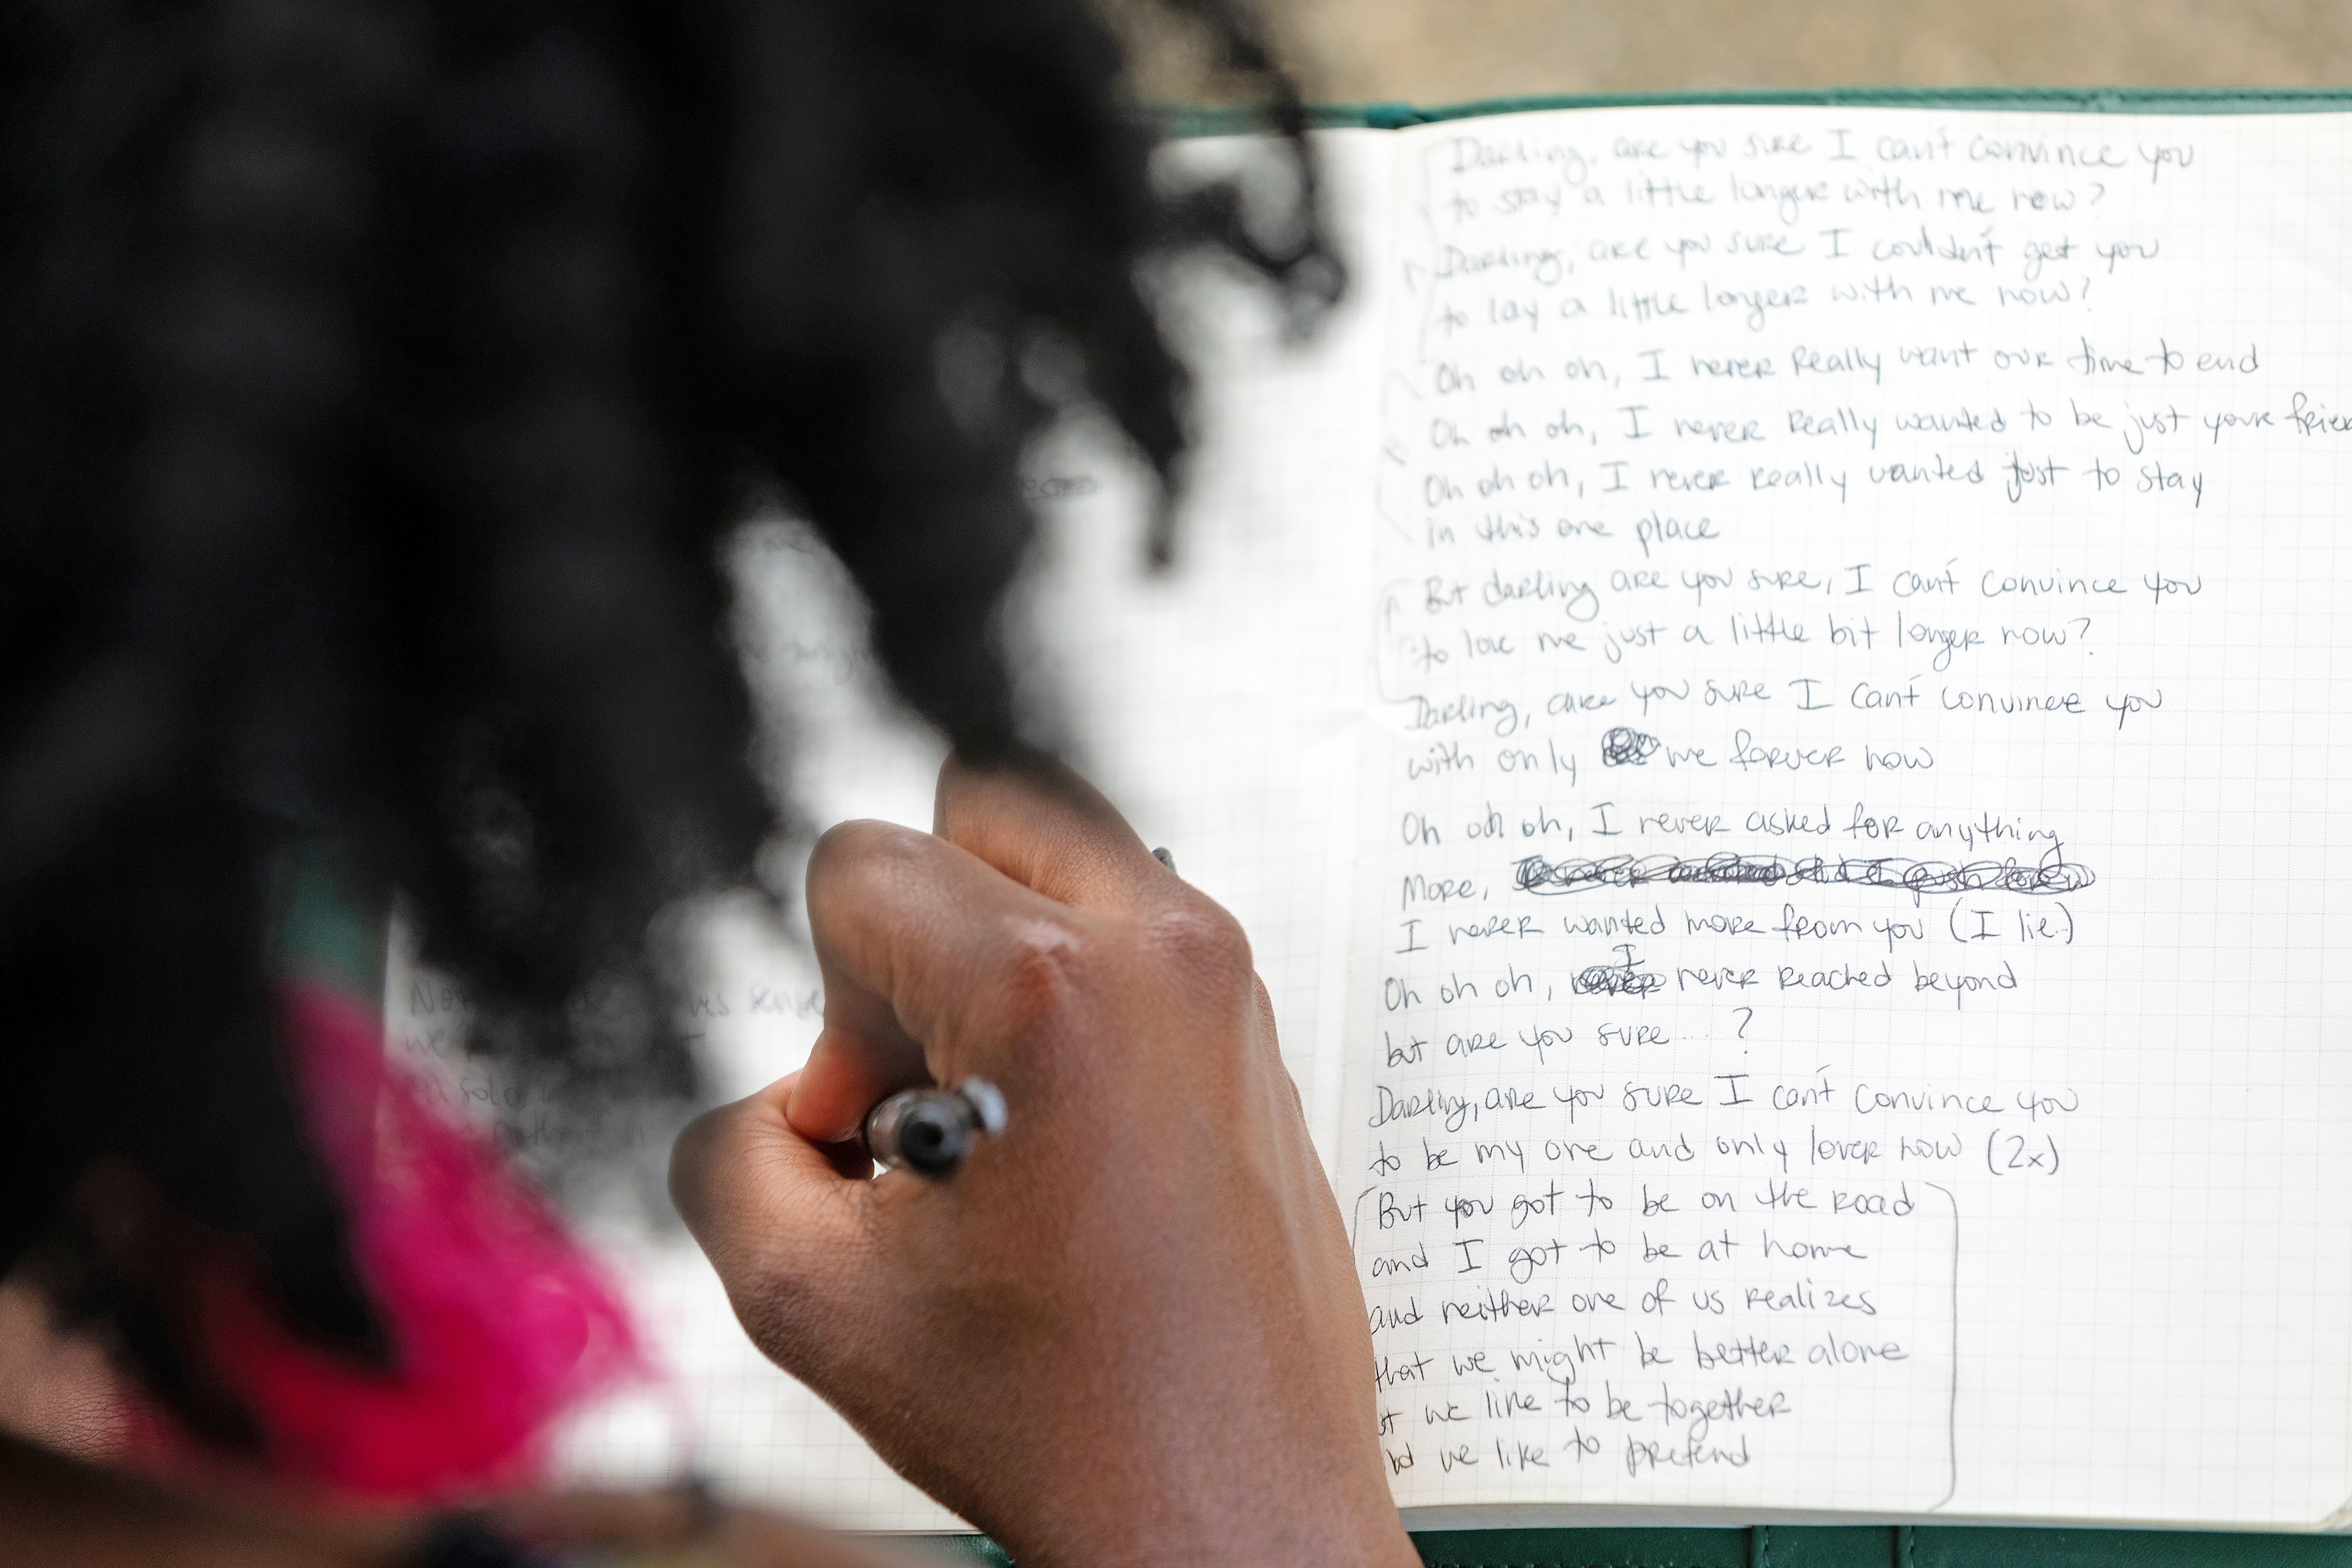 Not sense
we
Darling, are you sure I can't convince you
to stay a little longer with me now?
Darling, are you sure I couldn't get you
to lay a little longer with me now?
Oh oh oh, I never really want our time to end
Oh oh oh, I never really wanted to be just your
Oh oh oh, I never really wanted just to stay
in this one place
But darling are you sure, I can't convince you
to love me just a little bit longer now?
Darling, are you sure I can't convince you
with only we forver now
Oh oh oh, I never asked for anything
More,
I never wanted more from you (I lie)
Oh oh oh, I never reached beyond
but are you sure...?
Darling, are you sure I can't convince you
to be my one and only lover now (2x)
But you got to be on the road
and I got to be at home
and neither one of us realizes
that we might be better alone
we like to be together
we like to pretend